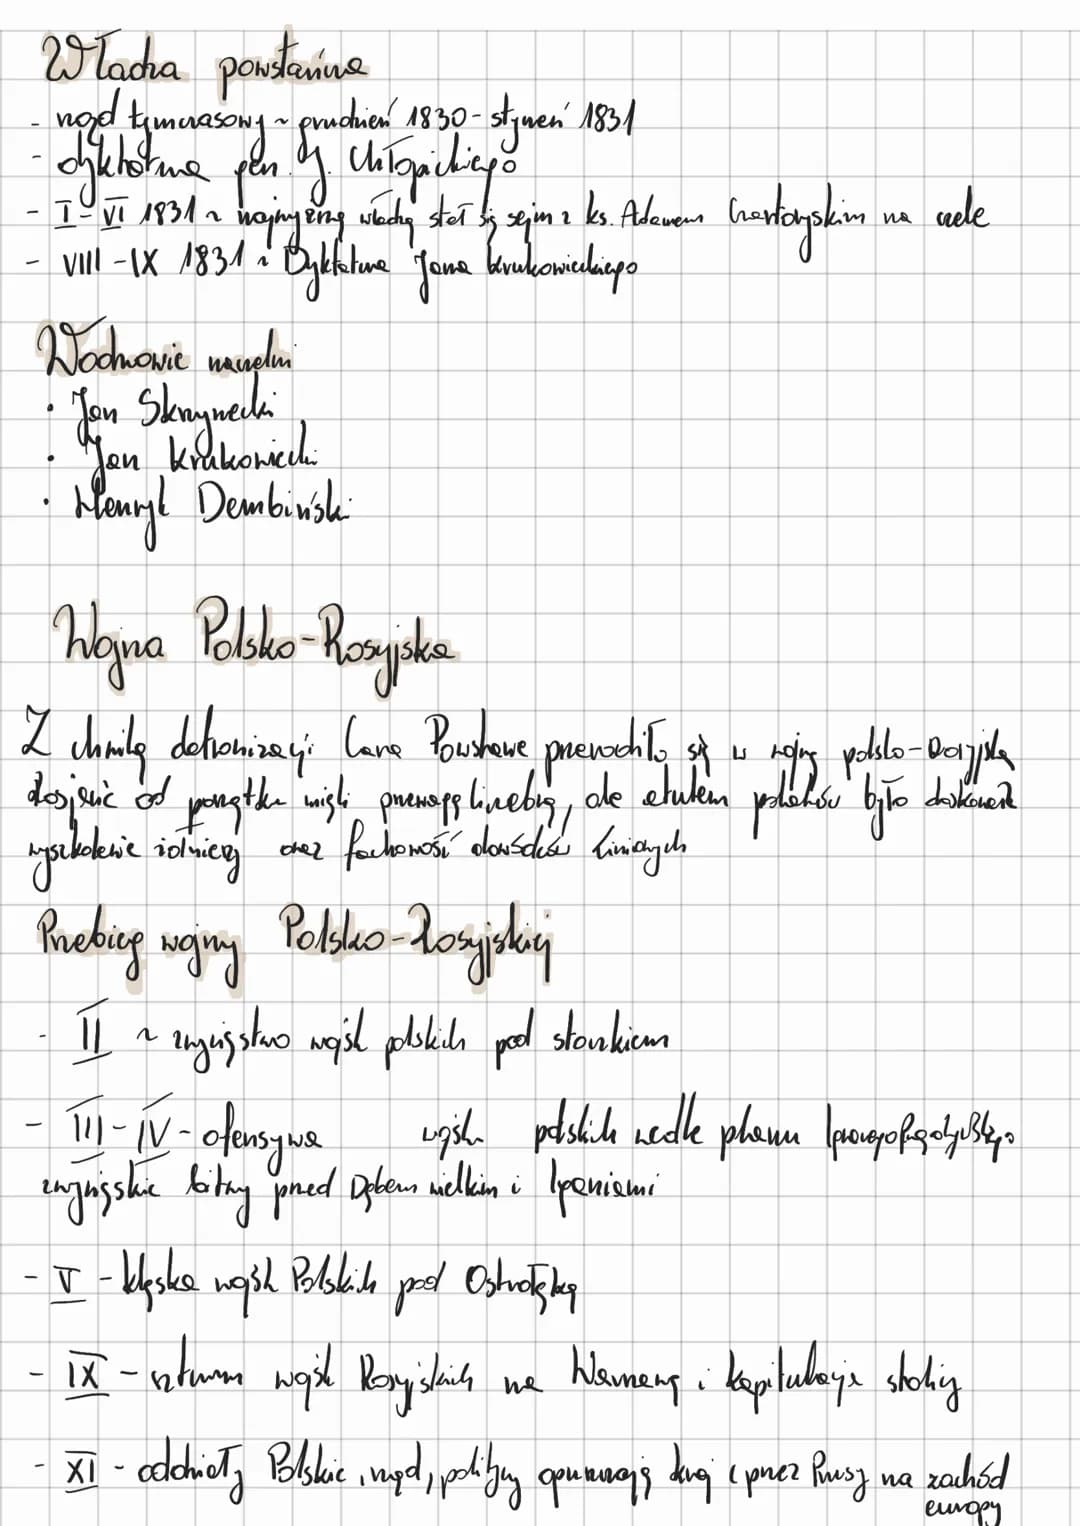 Władza powstańcza
- rząd tymczasowy ~ grudzień 1830 - styczeń 1831
- dyktatura gen. J. Chłopickiego
- I - VI 1831 ~ najwyższą władzą stał się sejm z ks. Adamem Czartoryskim na czele
- VIII - IX 1831 ~ Dyktatura Jana Krukowieckiego
Wodzowie naczelni
• Jan Skrzynecki
• Jan Krukowiecki
• Henryk Dembiński
Wojna Polsko-Rosyjska
Z chwilą detronizacji Cara Powstanie przerodziło się w wojnę polsko-Rosyjską
Rosjanie od początku mieli przewagę liczebną, ale atutem polaków było doskonałe
wyszkolenie żołnierzy oraz fachowość dowódców liniowych
Przebieg wojny Polsko-Rosyjskiej
- II ~ zwycięstwo wojsk polskich pod stoczkiem
- III - IV - ofensywa wojsk polskich wedle planu
zwycięskie bitwy pred Dębem wielkim i Iganiami
- V - klęska wojsk Polskich pod Ostrołęką
- IX - szturm wojsk Rosyjskich na Warszawę i kapitulacja stolicy
- XI - oddziały Polskie, rząd, politycy opuszczają kraj i przez Prusy na zachód
europy